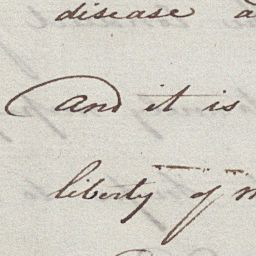 disease a
and it is
liberty of m